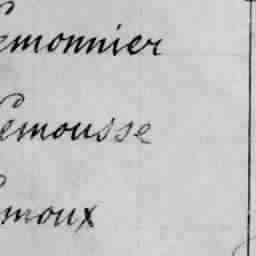 emonnier
Lemousse
emoux